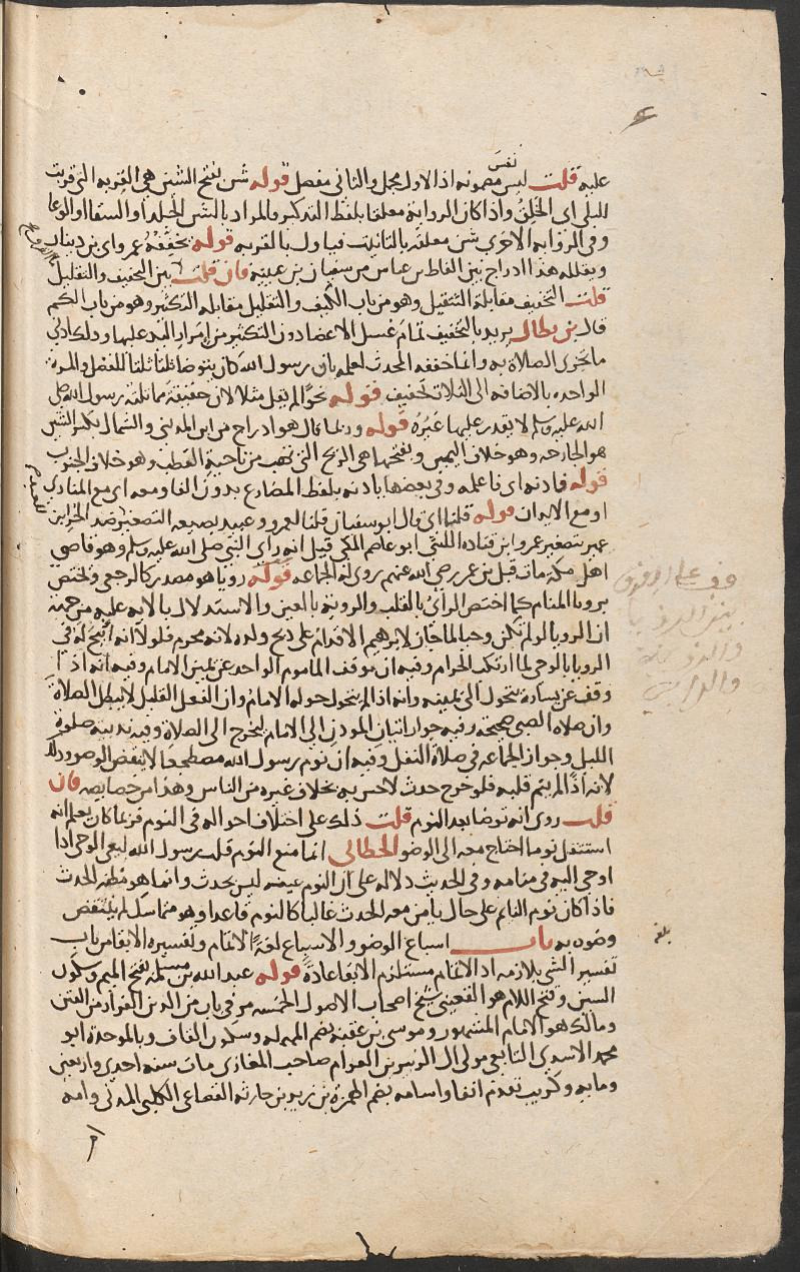 نفس
عليه قلت ليس مضمونه اذ الاول مجمل والثاني مفصل قوله شن بفتح الشين هي القربه التي قربت
للبلى اي الخلق واذا كان الرواية معلقا بلفظ التذكير والمراد بالشن الجلد او السقا او الوعا
وفي الروايه الاخري شن معلقة بالتانيث فياول بالقربه قوله يخففه عمرو اي بن دينار
ويقلله هذا ادراج بين الفاظ بن عباس من سفيان بن عيينة فان قلت بين التخفيف والتقليل
قلت التخفيف مقابلة التثقيل وهو من باب الكيف والتقليل مقابله التكثير وهو من باب الكم
قال بن بطال يريد بالتخفيف تمام غسل الاعضا دون التكثير من امرار اليد عليها وذلك ادني
ما تجزي الصلاة به وانما خففه المحدث لعلمه بان رسول الله كان يتوضا ثلثا ثلثا للفضل والمرة
الواحده بالاضافه الى الثلاث تخفيف قوله نحوا لم يقل مثلا لان حقيقة مماثلته رسول الله صلى
الله عليه وسلم لا يقدر عليها غيره قوله وربما قال هو ادراج من ابن المديني والشمال بكسر الشين
هو الجارحه وهو خلاف اليمين وبفتحها هي الريح التي تهب من ناحية القطب وهو خلاف الجنوب
قوله فاذنه اي فاعلمه وفي بعضها ياذنه بلفظ المضارع بدون الفا ومعه اي مع المنادي
او مع الايدان قوله قلنا اي قال ابو سفيان قلنا لعمرو وعبيد بصيغه التصغير ضد الحر ابن
عمير بتصغير عمرو ابن قتاده الليثي ابو عاصم المكي قيل انه راى النبي صلى الله عليه وسلم وهو قاضي
اهل مكة مات قبل بن عمر رضي الله عنهم روي له الجماعه قوله رويا هو مصدر كالرجعي وتختص
برويا المنام كما اختص الراي بالقلب والروية بالعين والاستدلال بالايه عليه من جهة
ان الرويا لو لم تكن وحيا لما جاز لابرهيم الاقدام على ذبح ولده لانه محرم فلولا انه ابيح له في
الرويا بالوحي لما ارتكب الحرام وفيه ان موقف الماموم الواحد عن يمين الامام وفيه انه اذا
وقف عن يساره يتحول الى يمينه وانه اذا لم يتحول حوله الامام وان الفعل القليل لا يبطل الصلاة
وان صلاه الصبي صحيحة وفيه جواز اتيان الموذن الى الامام ليخرج الى الصلاة وفيه ندبية صلوة
الليل وجواز الجماعه في صلاة النفل وفيه ان نوم رسول الله مضطجعا لا ينقض الوضو وذلك
لانه اذا لم ينم قلبه فلو خرج حدث لاحس به بخلاف غيره من الناس وهذا من خصايصه فان
قلت روي انه توضا بعد النوم قلت ذلك على اختلاف احواله في النوم فربما كان يعلم انه
استثقل نوما احتاج معه الى الوضو الخطابي انما منع النوم قلب رسول الله ليعي الوحي اذا
اوحي اليه في منامه وفي الحديث دلاله على ان النوم عينه ليس بحدث وانما هو مظنه الحدث
فاذا كان نوم النايم على حال يامن معه الحدث غالبا كالنوم قاعدا وهو متماسك لم ينتقض
وضوه به باب اسباغ الوضو والاسباغ لغة الاتمام وتفسيره الانقا من باب
بلغ
تفسير الشي بلازمه اذ الاتمام مستلزم الانقا عادة قوله عبد الله بن مسلمة بفتح الميم وسكون
السين وفتح اللام هو القعنبي شيخ اصحاب الاصول الخمسه مر في باب من الدين الفرار من الفتن
ومالك هو الامام المشهور وموسى بن عقبه بضم المهمله وسكون القاف وبالموحدة ابو
محمد الاسدي التابعي مولى ال الزبير بن العوام صاحب المغازي مات سنه احدي واربعين
ومايه وكريب تقدم انفا واسامه بضم الهمزة بن زيد بن حارثه القضاعي الكلبي المدني وامه